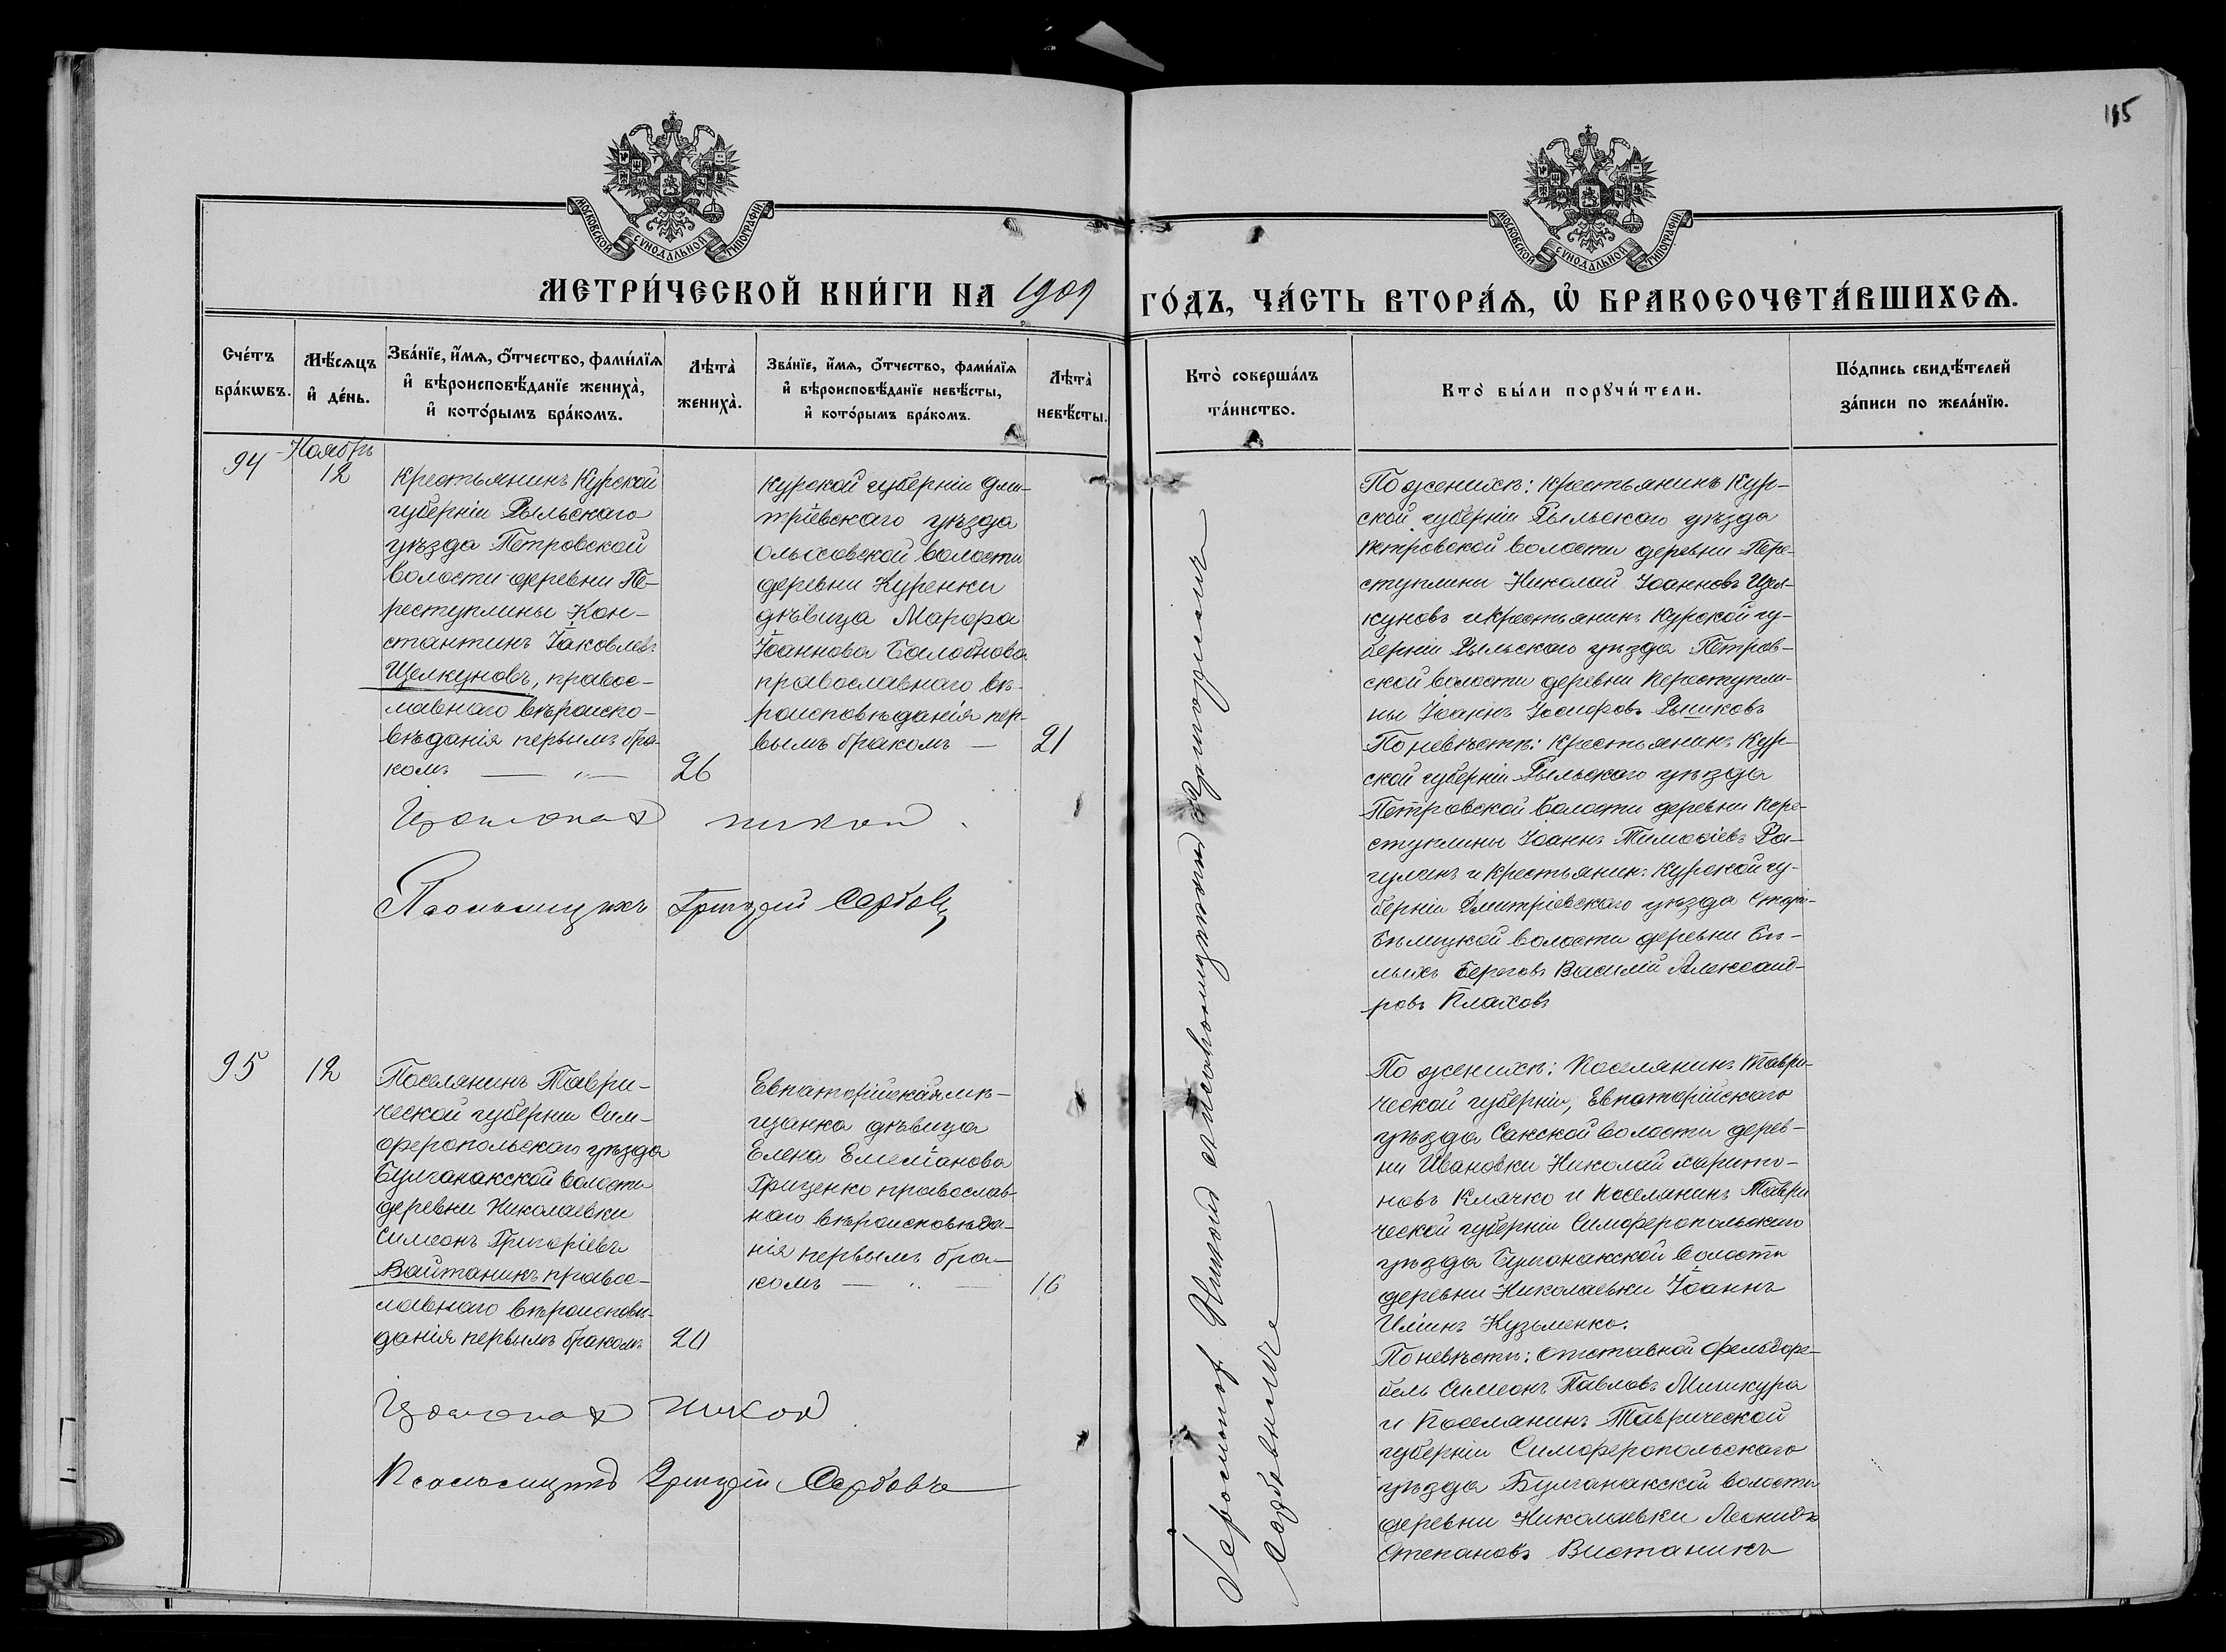 115
МОСКОВСКОЙ СѴНОДАЛЬНОЙ ТИПОГРАФІИ
МОСКОВСКОЙ СѴНОДАЛЬНОЙ ТИПОГРАФІИ
МЕТРИ́ЧЕСКОЙ КНИ́ГИ НА 1909 ГО́ДЪ, ЧА́СТЬ ВТОРА́Ѧ, Ѡ БРАКОСОЧЕТА́ВШИХСѦ.
Сче́тъ бра́кѡвъ.
Мѣ́сѧцъ и де́нь.
Зва́нїе, и́мѧ, ѻ҆́тчество, фами́лїѧ и҆ вѣроисповѣ́данїе жениха̀, и҆ кото́рымъ бра́комъ.
Лѣта̀ жениха̀.
Зва́нїе, и́мѧ, ѻ҆́тчество, фами́лїѧ и҆ вѣроисповѣ́данїе невѣ́сты, и҆ кото́рымъ бра́комъ.
Лѣта̀ невѣ́сты.
Кто̀ соверша́лъ та́инство.
Кто̀ бы́ли порꙋчи́тели.
По́дпись свидѣ́телей за́писи по жела́нїю.
94
Ноябрь
12
Крестьянинъ Курской
губерніи Рыльскаго
уѣзда Петровской
волости деревни Пе-
реступлины Кон-
стантинъ Іаковлевъ
Щелкуновъ, правос-
лавнаго вѣроиспо-
вѣданія первымъ бра-
комъ — „ —
26
Курской губерніи Дми-
тріевскаго уѣзда
Ольховской волости
деревни Куренки
дѣвица Марфа
Іоаннова
православнаго вѣ-
роисповѣданія пер-
вымъ бракомъ —
21
Іеромонах Никон
Псаломщикъ Григорій Сербовъ
По женихѣ: Крестьянинъ Кур-
ской губерніи Рыльскаго уѣзда
Петровской волости деревни Пере-
ступлины Николай Іоанновъ Щел-
куновъ и крестьянинъ Курской гу-
берніи Рыльскаго уѣзда Петров-
ской волости деревни Переступли-
ны Іоаннъ Іосифовъ
По невѣстѣ: Крестьянинъ Кур-
ской губерніи Рыльскаго уѣзда
Петровской волости деревни Пере-
ступлины Іоаннъ Тимофіевъ Ра-
гулинъ и крестьянинъ Курской гу-
берніи Дмитріевскаго уѣзда Старо-
бѣлицкой волости деревни Бѣ-
лыхъ Береговъ Василій Александ-
ровъ Плаховъ
Іеромонах Никонъ с псаломщикомъ Григоріемъ
Сербовымъ
95
12
Поселянинъ Таври-
ческой губерніи Сим-
феропольскаго уѣзда
Булганакской волости
деревни Николаевки
Симеонъ Григоріевъ
Вайтаникъ правос-
лавнаго вѣроисповѣ-
данія первымъ бракомъ
20
Евпаторійская мѣ-
щанка дѣвица
Елена Емеліанова
Гриценко православ-
наго вѣроисповѣда-
нія первымъ бра-
комъ — „ —
16
Іеромонах Никон
Псаломщикъ Григорій Сербовъ
По женихѣ: Поселянинъ Таври-
ческой губерніи, Евпаторійскаго
уѣзда Сакской волости дерев-
ни Ивановки Николай Харито-
новъ Клячко и поселянинъ Таври
ческой губерніи Симферопольскаго
уѣзда Булганакской волости
деревни Николаевки Іоаннъ
Иліинъ Кузьменко.
По невѣсты: Отставной фельдфе-
бель Симеонъ Павловъ Мишкура
и Поселянинъ Таврической
губерніи Симферопольскаго
уѣзда Булганакской волости
деревни Николаевки Леонидъ
Степановъ Вистаникъ